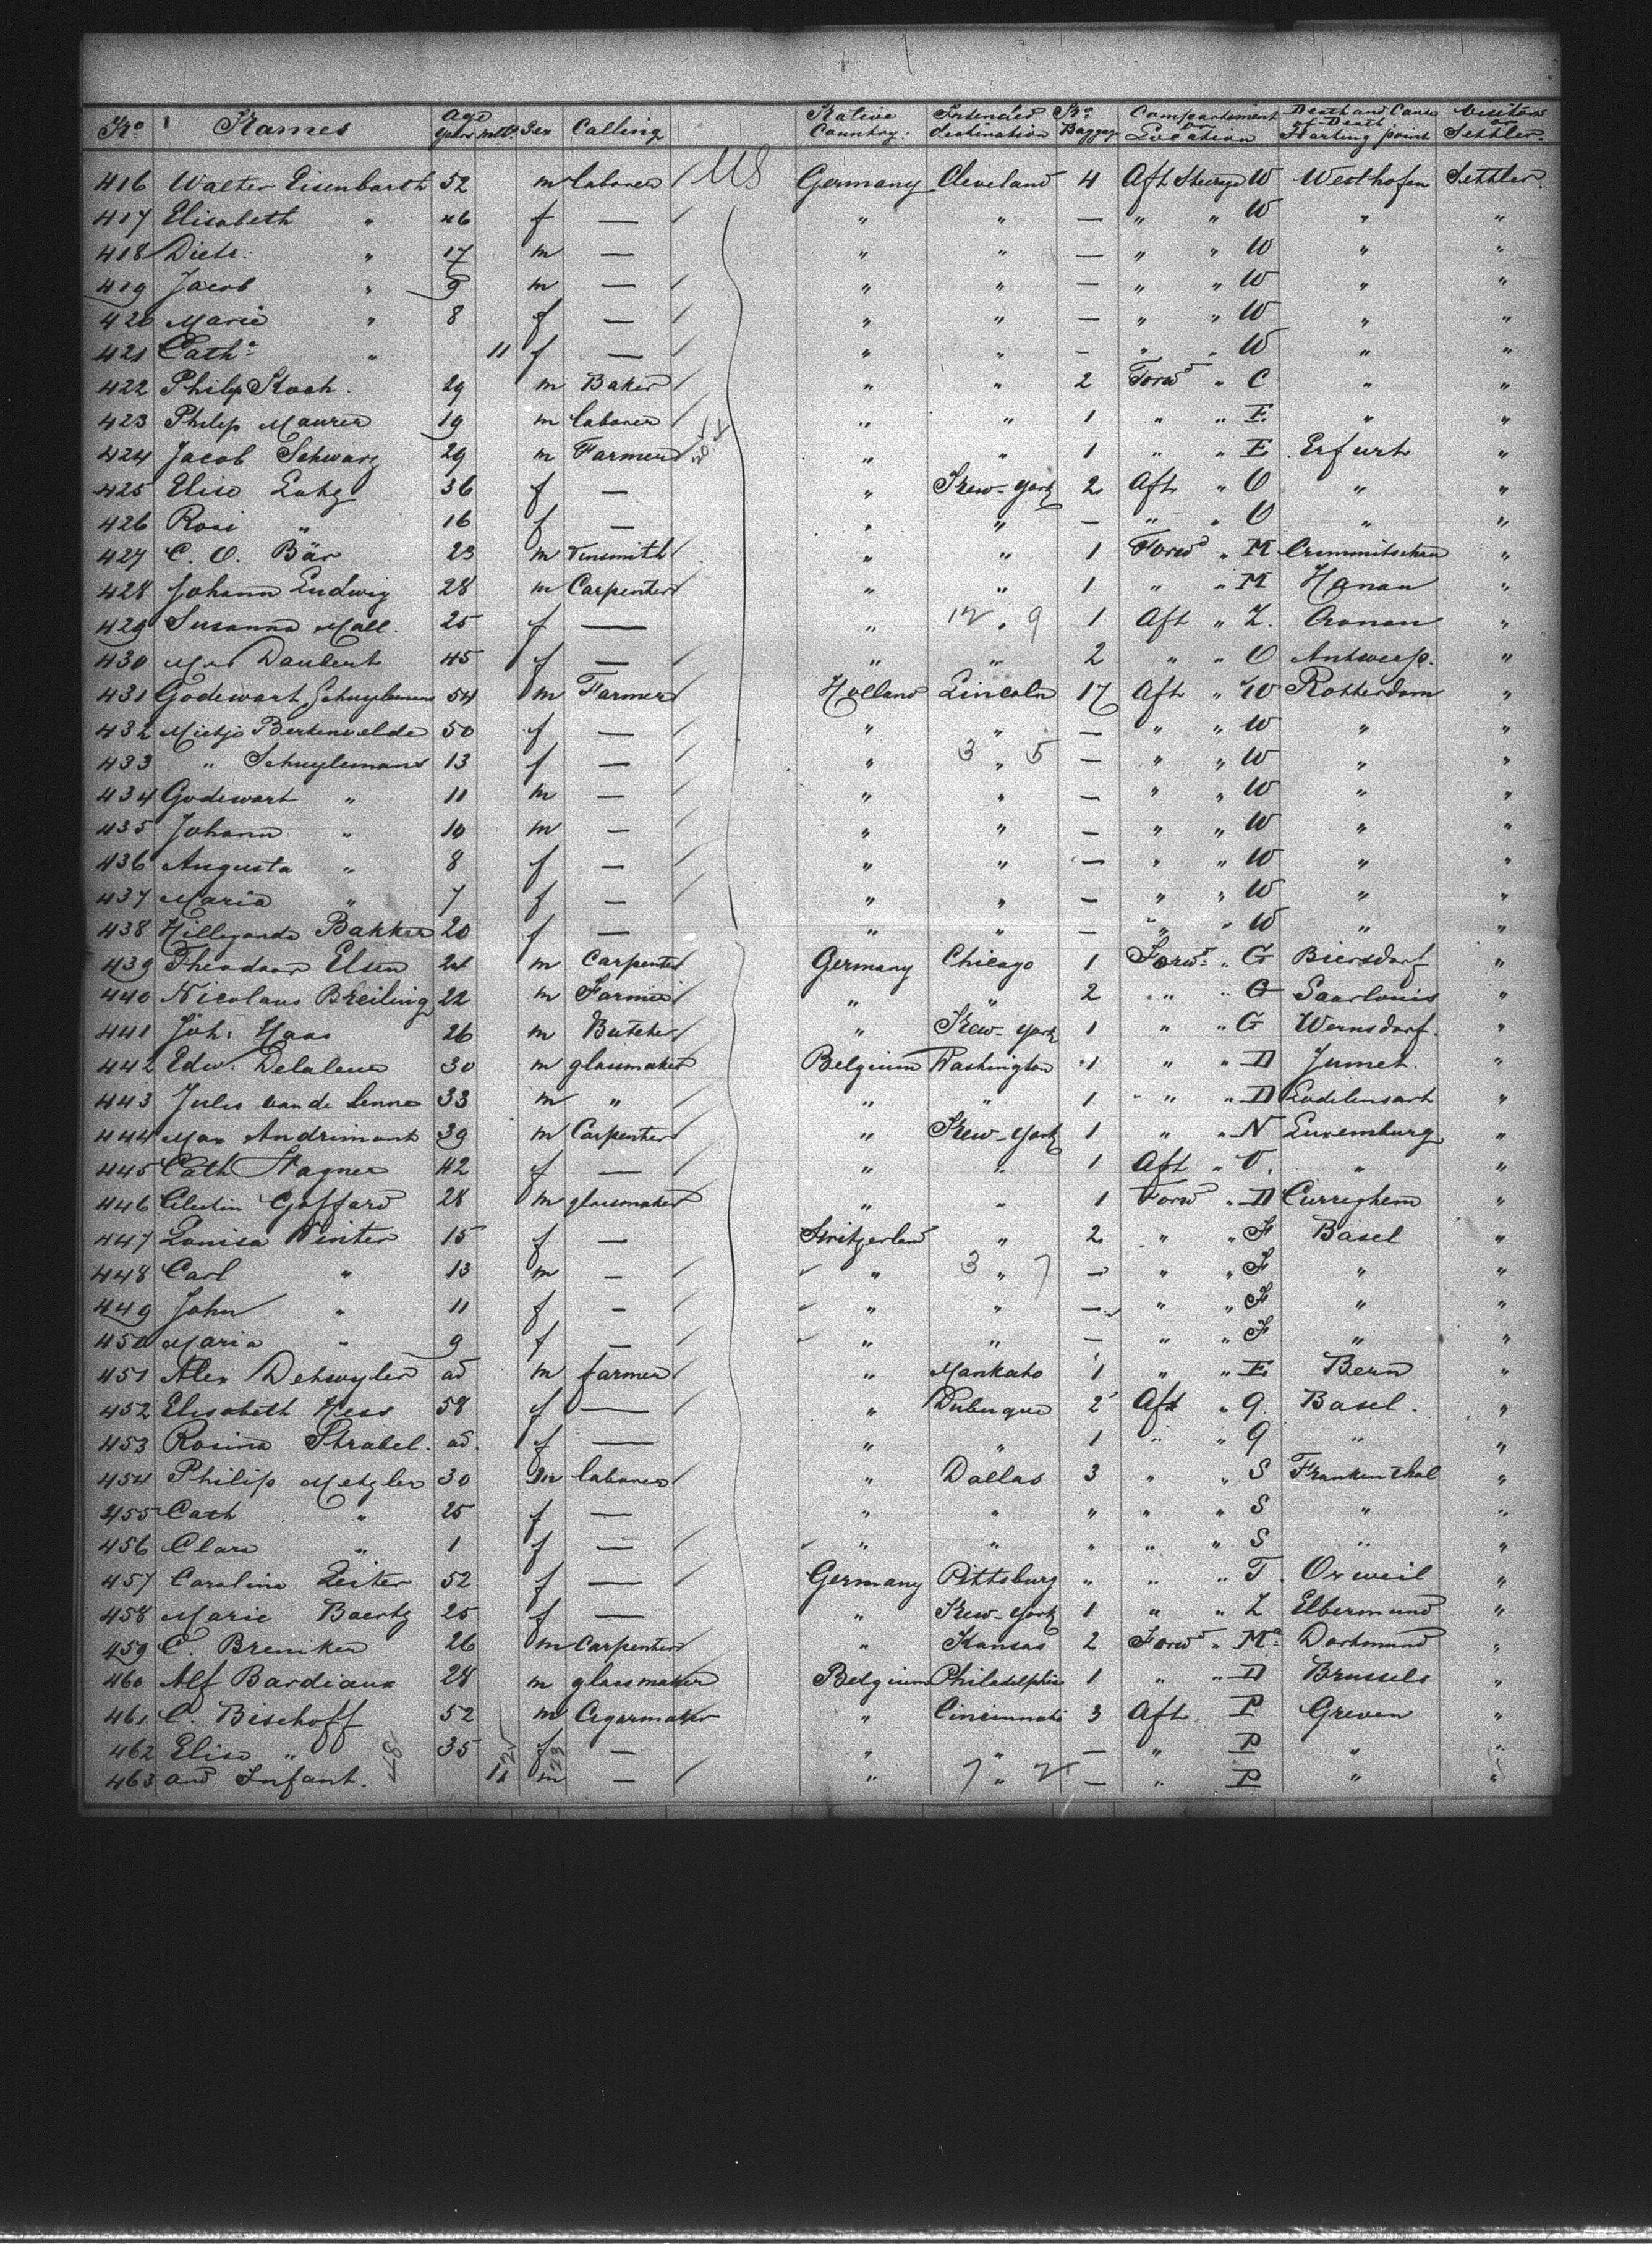 No Names Age Years mth. Sex Calling Native Country: Intended destination No Baggage Compartement or Location Death and Cause of Death Starting point Visitors or Settler.
416 Walter Eisenbarth 52 m laborer / US Germany Cleveland 4 Aft Steerge W Westhofen Settler.
417 Elisabeth " 46 f — / " " — " " W " "
418 Dietr: " 17 m — " " — " " W " "
419 Jacob " 9 m — / " " — " " W " "
420 Marie " 8 f — / " " — " " W " "
421 Catha " 11 f — / " " — " " W " "
422 Philip Stoch. 29 m Baker / " " 2 Forwd " C " "
423 Philip Maurer 19 m laborer / " " 1 " " E " "
424 Jacob Schwarz 29 m Farmer " " 1 " " E Erfurt "
425 Elise Lutz 36 f — " New-York 2 Aft " O " "
426 Rosi " 16 f — " " — " " O " "
427 C. O. Bär 23 m Tinsmith " " 1 Forwd " M Crimmitschau "
428 Johann Ludwig 28 m Carpenter / " " 1 " " M Hanau "
429 Susanna Mall. 25 f — / " 12 " 9 1 Aft " Z. Cronau "
430 Mrs Daubert 45 f — / " " 2 " " O Antwerp. "
431 Godewart Schuylemans 54 m Farmer / Holland Lincoln 17 Aft " W Rotterdam "
432 Mietje Berkenvelde 50 f — / " " — " " W " "
433 " Schuylemans 13 f — / " 3 " 5 — " " W " "
434 Godewart " 11 m — / " " — " " W " "
435 Johann " 10 m — / " " — " " W " "
436 Augusta " 8 f — / " " — " " W " "
437 Maria " 7 f — / " " — " " W " "
438 Hillegonda Bakker 20 f — / " " — " " W " "
439 Theodoor Elsen 24 m Carpenter Germany Chicago 1 Forwd " G Biersdorf "
440 Nicolaus Breiling 22 m Farmer / " " 2 " " G Saarlouis "
441 Joh: Haas 26 m Butcher / " New-York 1 " " G Wernsdorf. "
442 Edw. Delaleue 30 m glassmaker Belgium Washington 1 " " D Jumet. "
443 Jules van de Lenne 33 m " / " " 1 " " D Lodelinsart "
444 Max Andrimont 39 m Carpenter / " New-York 1 " " N Luxemburg "
445 Cath Wagner 42 f — / " " 1 Aft " O. " "
446 Celestin Goffard 28 m glassmaker " " 1 Forwd " D Curreghem "
447 Louisa Winter 15 f — / Switzerland " 2 " " F Basel "
448 Carl " 13 m — / " 3 " 7 — " " F " "
449 John " 11 f — / " " — " " F " "
450 Maria " 9 f — / " " — " " F " "
451 Alex Detwyler ad m farmer / " Mankato 1 " " E Bern "
452 Elisabeth Hess 58 f — / " Dubuque 2 Aft " Q. Basel. "
453 Rosina Strabel. ad. f — " " 1 " " Q " "
454 Philip Metzler 30 m laborer / " Dallas 3 " " S Frankenthal "
455 Cath " 25 f — / " " " " " S " "
456 Clara " 1 f — / " " " " " S " "
457 Carolina Zeiter 52 f — / Germany Pittsburg " " " T. Orweil "
458 Marie Baertz 25 f — " New-York 1 " " Z Elbermund "
459 C. Breniker 26 m Carpenter " Kansas 2 Forwd " M Dortmund "
460 Alf Bardiaux 28 m glassmaker Belgium Philadelphia 1 " " D Brussels "
461 C. Bischoff 52 m Cigarmaker " Cincinnati 3 Aft P Greven "
462 Elise " 35 f — " " — " P " "
463 and Infant. 11 m — / " 7 " 2 — " P " "